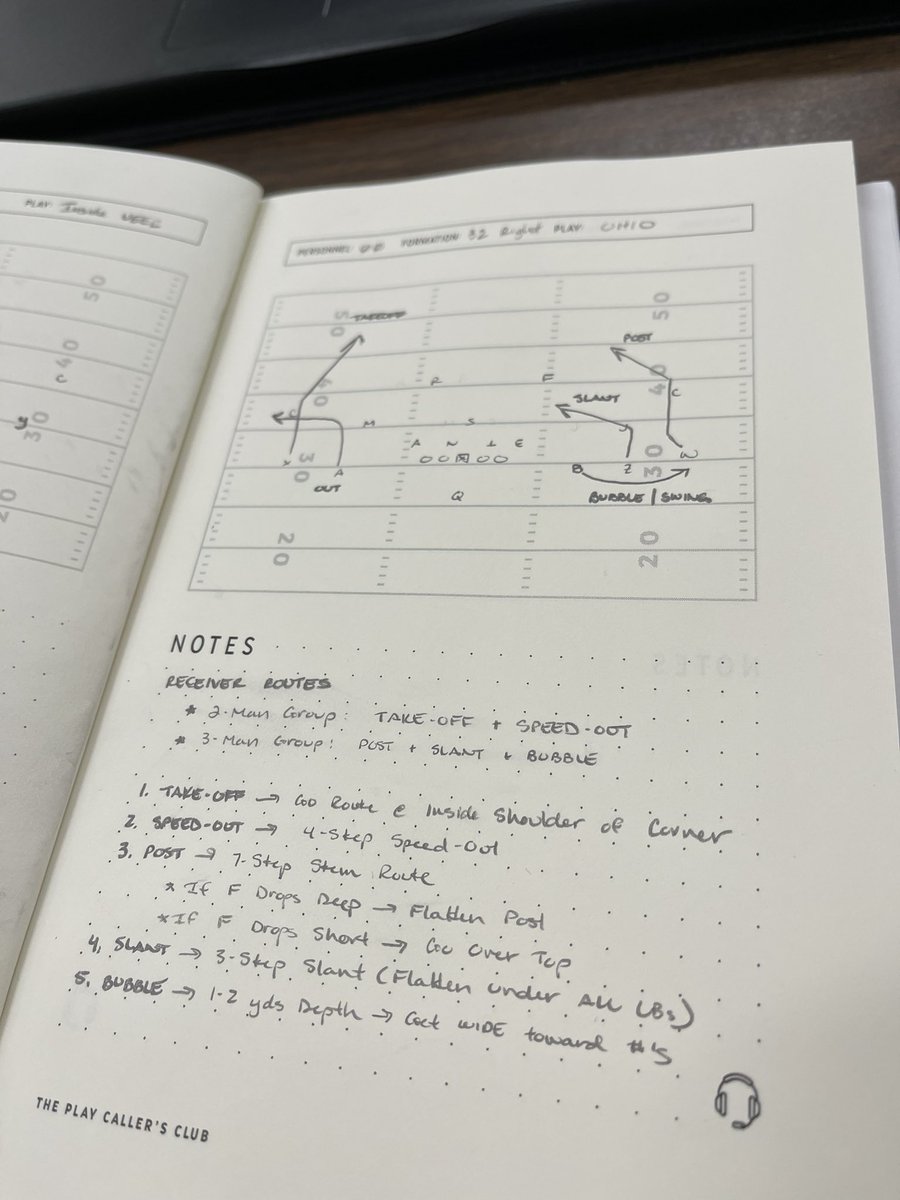 PLAY: Inside VEER
50
40
C
y
30
20
PERSONNEL: 00 FORMATION: 32 Right PLAY: OHIO
50 TAKEOFF 50
POST
40 R F 40 C
C SLANT
M S
A N T E
X 30 A B Z 30 W
OUT Q BUBBLE / SWING
20 20
NOTES
RECEIVER ROUTES
* 2-Man Group: TAKE-OFF + SPEED-OUT
* 3-Man Group: POST + SLANT + BUBBLE
1. TAKE-OFF → Go Route @ Inside Shoulder of Corner
2. SPEED-OUT → 4-Step Speed-Out
3. POST → 7-Step Stem Route
* If F Drops Deep → Flatten Post
* If F Drops Short → Go Over Top
4. SLANT → 3-Step Slant (Flatten under All LBs)
5. BUBBLE → 1-2 yds Depth → Get WIDE toward #'s
THE PLAY CALLER'S CLUB